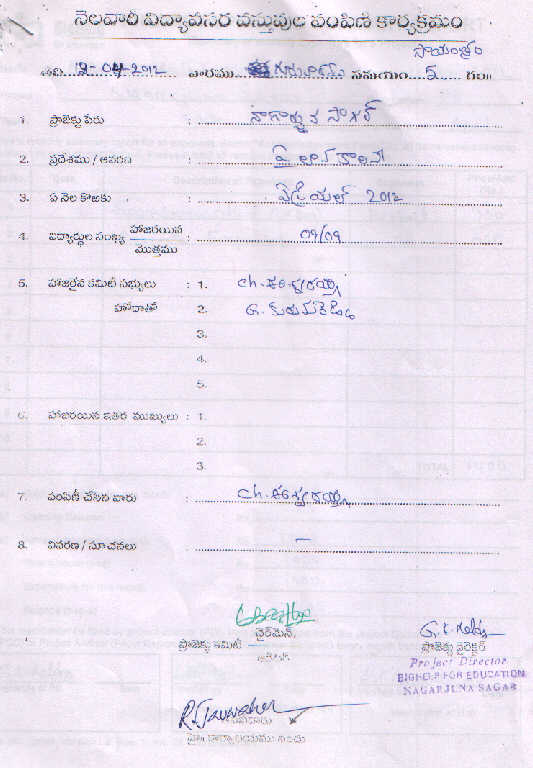 నెలవారీ విద్యావసర వస్తువుల పంపిణీ కార్యక్రమం
సాయంత్రం
తేది 12-04-2012 వారము గురువారం సమయం 5 గం॥
1. ప్రాజెక్టు పేరు : నాగార్జున సాగర్
2. ప్రదేశము / ఆవరణ : పైలాన్ కాలనీ
3. ఏ నెల కొఱకు : ఏప్రియల్ 2012
4. విద్యార్థుల సంఖ్య హాజరయిన / మొత్తము : 09/09
5. హాజరైన కమిటీ సభ్యులు : 1. ch. ఈశ్వరయ్య
హోదాతో 2. G.
3.
4.
5.
6. హాజరయిన ఇతర ముఖ్యులు : 1.
2.
3.
7. పంపిణీ చేసిన వారు : ch. ఈశ్వరయ్య
8. వివరణ / సూచనలు : —
ప్రాజెక్టు కమిటీ చైర్మెన్
G.K. Reddy
ప్రాజెక్టు డైరెక్టర్
Project Director
BIGHELP FOR EDUCATION
NAGARJUNA SAGAR
R. Jawaher